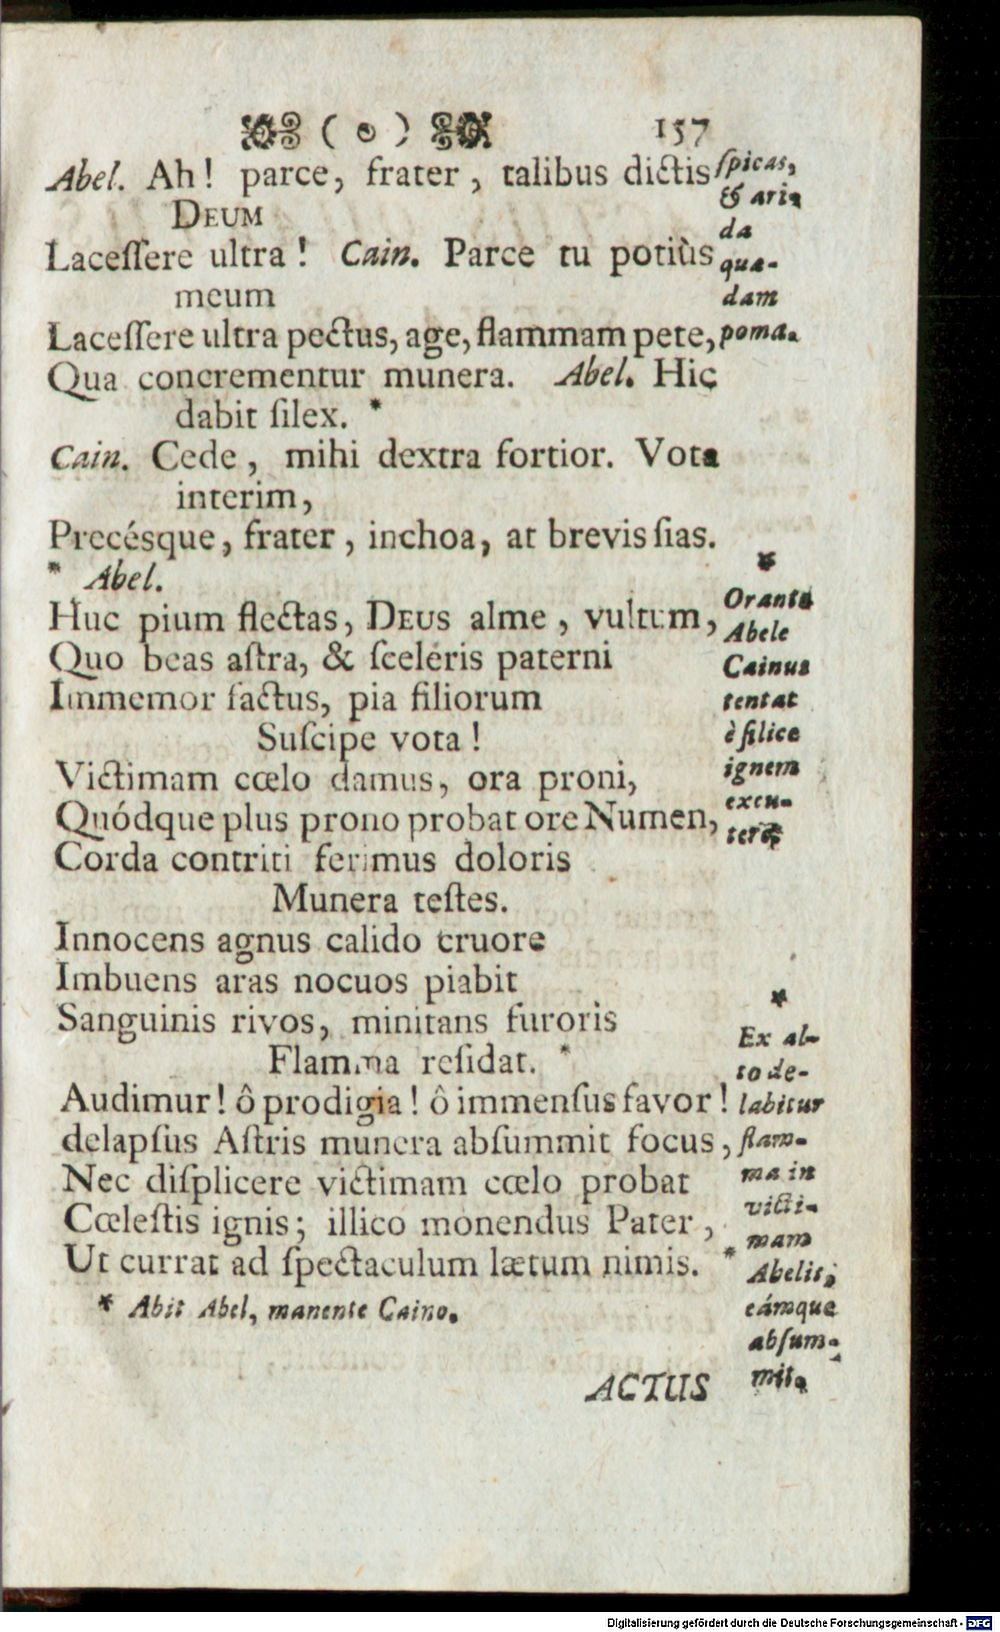 157
Abel. Ah! parce, frater, talibus dictis
DEUM
Laceſſere ultra! Cain. Parce tu potiùs
meum
Laceſſere ultra pectus, age, flammam pete,
Qua concrementur munera. Abel. Hic
dabit ſilex. *
Cain. Cede, mihi dextra fortior. Vota
interim,
Precésque, frater, inchoa, at brevis ſias.
* Abel.
Huc pium flectas, DEUS alme, vultum,
Quo beas aſtra, & ſceleris paterni
Immemor factus, pia filiorum
Suſcipe vota!
Victimam cœlo damus, ora proni,
Quódque plus prono probat ore Numen,
Corda contriti ferimus doloris
Munera teſtes.
Innocens agnus calido cruore
Imbuens aras nocuos piabit
Sanguinis rivos, minitans furoris
Flamma reſidat. *
Audimur! ô prodigia! ô immenſus favor!
delapſus Aſtris munera abſummit focus,
Nec diſplicere victimam cœlo probat
Cœleſtis ignis; illico monendus Pater,
Ut currat ad ſpectaculum lætum nimis. *
* Abit Abel, manente Caino.
ACTUS
ſpicas,
& ari-
da
qua-
dam
poma.
*
Orante
Abele
Cainus
tentat
è ſilice
ignem
excu-
tere.
*
Ex al-
to de-
labitur
flam-
ma in
victi-
mam
Abelis,
eámque
abſum-
mit.
Digitalisierung gefördert durch die Deutsche Forschungsgemeinschaft - DFG